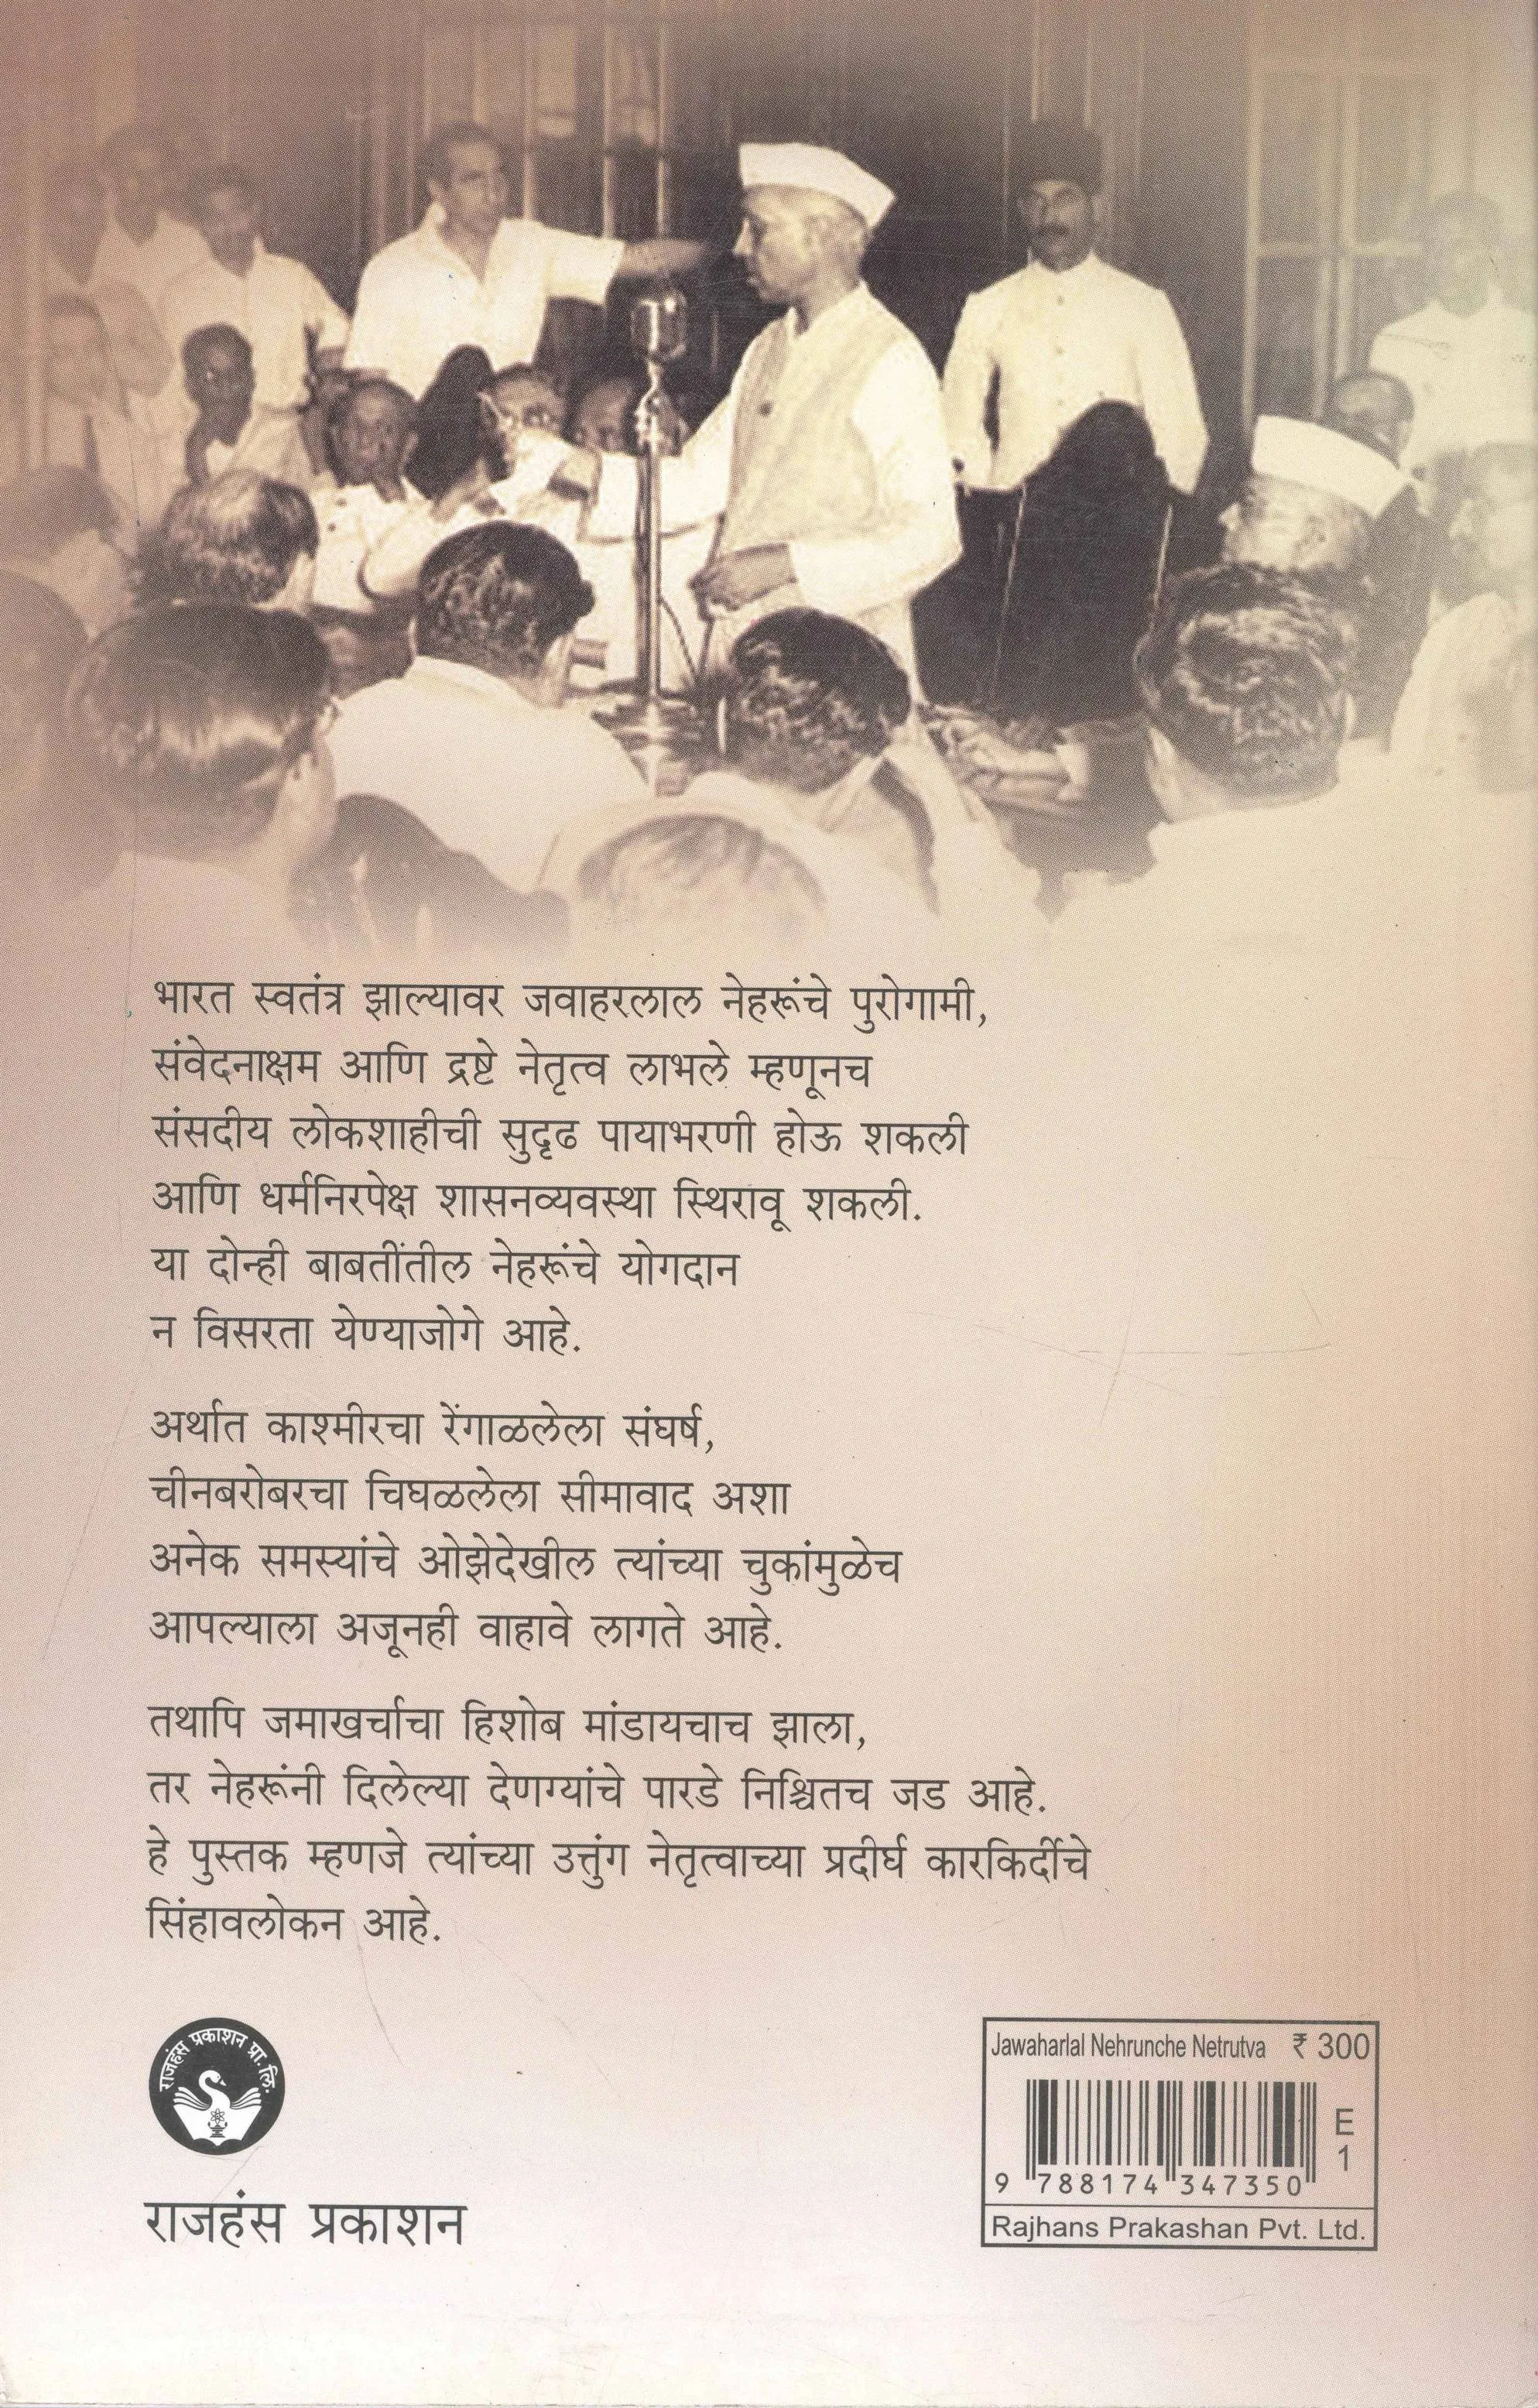 भारत स्वतंत्र झाल्यावर जवाहरलाल नेहरूंचे पुरोगामी,
संवेदनाक्षम आणि द्रष्टे नेतृत्व लाभले म्हणूनच
संसदीय लोकशाहीची सुदृढ पायाभरणी होऊ शकली
आणि धर्मनिरपेक्ष शासनव्यवस्था स्थिरावू शकली.
या दोन्ही बाबतींतील नेहरूंचे योगदान
न विसरता येण्याजोगे आहे.
अर्थात काश्मीरचा रेंगाळलेला संघर्ष,
चीनबरोबरचा चिघळलेला सीमावाद अशा
अनेक समस्यांचे ओझेदेखील त्यांच्या चुकांमुळेच
आपल्याला अजूनही वाहावे लागते आहे.
तथापि जमाखर्चाचा हिशोब मांडायचाच झाला,
तर नेहरूंनी दिलेल्या देणग्यांचे पारडे निश्चितच जड आहे.
हे पुस्तक म्हणजे त्यांच्या उत्तुंग नेतृत्वाच्या प्रदीर्घ कारकिर्दीचे
सिंहावलोकन आहे.
राजहंस प्रकाशन प्रा. लि.
राजहंस प्रकाशन
Jawaharlal Nehrunche Netrutva ₹ 300
E
1
9 788174 347350
Rajhans Prakashan Pvt. Ltd.